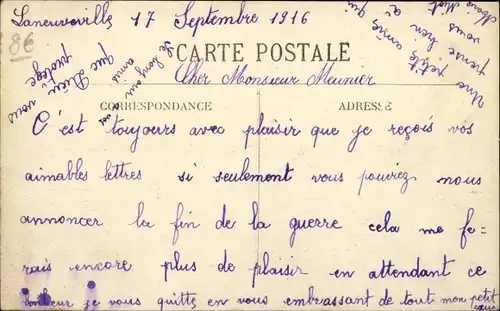 Laneuveville, 17 Septembre 1916
8€
CARTE POSTALE
Cher Monsieur Meunier
CORRESPONDANCE
ADRESSE
C'est toujours avec plaisir que je reçois vos
aimables lettres si seulement vous pouviez nous
annoncer la fin de la guerre cela me fe-
rais encore plus de plaisir en attendant ce
bonheur je vous quitte en vous embrassant de tout mon petit
cœur
Une petite amie qui
pense bien à
vous
que Dieu
vous protège